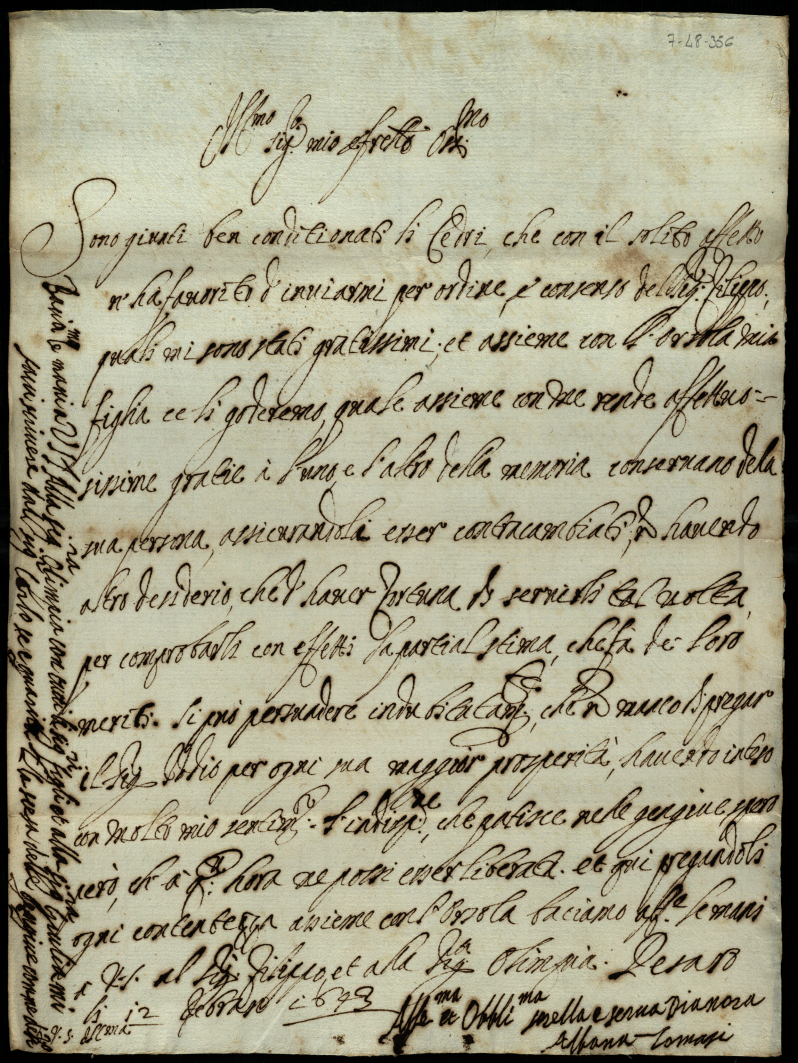 7-48-356
Ill.mo Sig.r mio fratello Oss.mo
Sono giunti ben conditionati li Cedri, che con il solito affetto
m'ha favorito d'inviarmi per ordine, e consenso del Sig.r Filippo,
quali mi sono stati gratissimi, et assieme con l'Orsola mia
figlia ce li goderemo, quale assieme con me rende affettuo=
sissime gratie à l'uno, e l'altro della memoria conservano dela
mia persona, assicurandoli esser contracambiati, havendo
altro desiderio, che d'haver fortuna di servirli tal volta,
per comprobarli con effetti la partial stima, che fà de loro
meriti. Si può persuadere indubitatam.te, che n manco di pregar
il Sig.r Iddio per ogni sua maggior prosperità, havendo inteso
con molto mio sentim.to l'indisp.ne, che patisce nelle gengive spero
però, ch' à q.st' hora ne possi esser liberata. et qui pregandoli
ogni contentezza assieme con l'Orsola baciamo aff.te le mani
a V.S. al Sig.r Filippo, et alla Sig.ra Olimpia. Pesaro
li 12 Febraro 1643
Aff.ma et Obbli.ma sorella e serva Dianora
Albana Tomasi
le mani a V.S. alla Sig.ra Olimpia con tutti li figli et alla Sig.ra Giulia mi
dal Sig.r Carlo se è guarita delle gengive